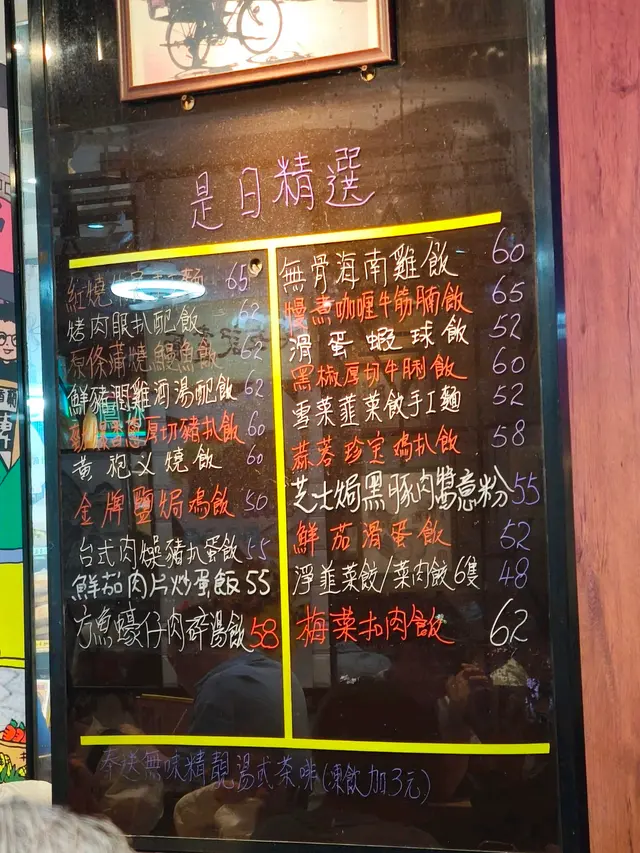 是日精選
紅燒 麵 65
烤肉眼扒配飯 62
原條蒲燒鰻魚飯 62
鮮豬潤雞酒湯配飯 62
厚切豬扒飯 60
黄袍义燒飯 60
金牌鹽焗鸡飯 50
台式肉燥豬扒蛋飯 55
鮮茄肉片炒蛋飯 55
方魚蠔仔肉碎湯飯 58
無骨海南雞飯 60
慢煮咖喱牛筋腩飯 65
滑蛋蝦球飯 52
黑椒厚切牛脷飯 60
雪菜韮菜餃手工麵 52
蒜蓉珍宝鸡扒飯 58
芝士焗黑豚肉醬意粉 55
鮮茄滑蛋飯 52
淨韮菜餃/菜肉餃6隻 48
梅菜扣肉飯 62
奉送無味精靚湯或茶啡(凍飲加3元)